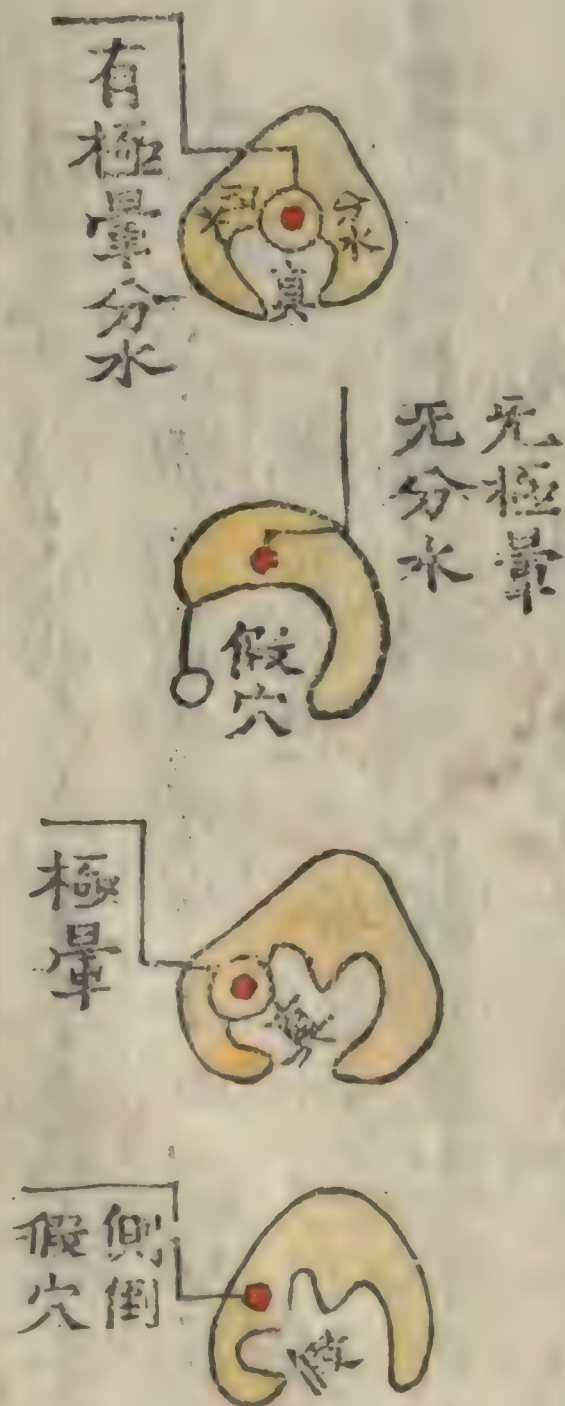 有極暈分水
分水
真
无極暈
无分水
假穴
極暈
側倒
假穴